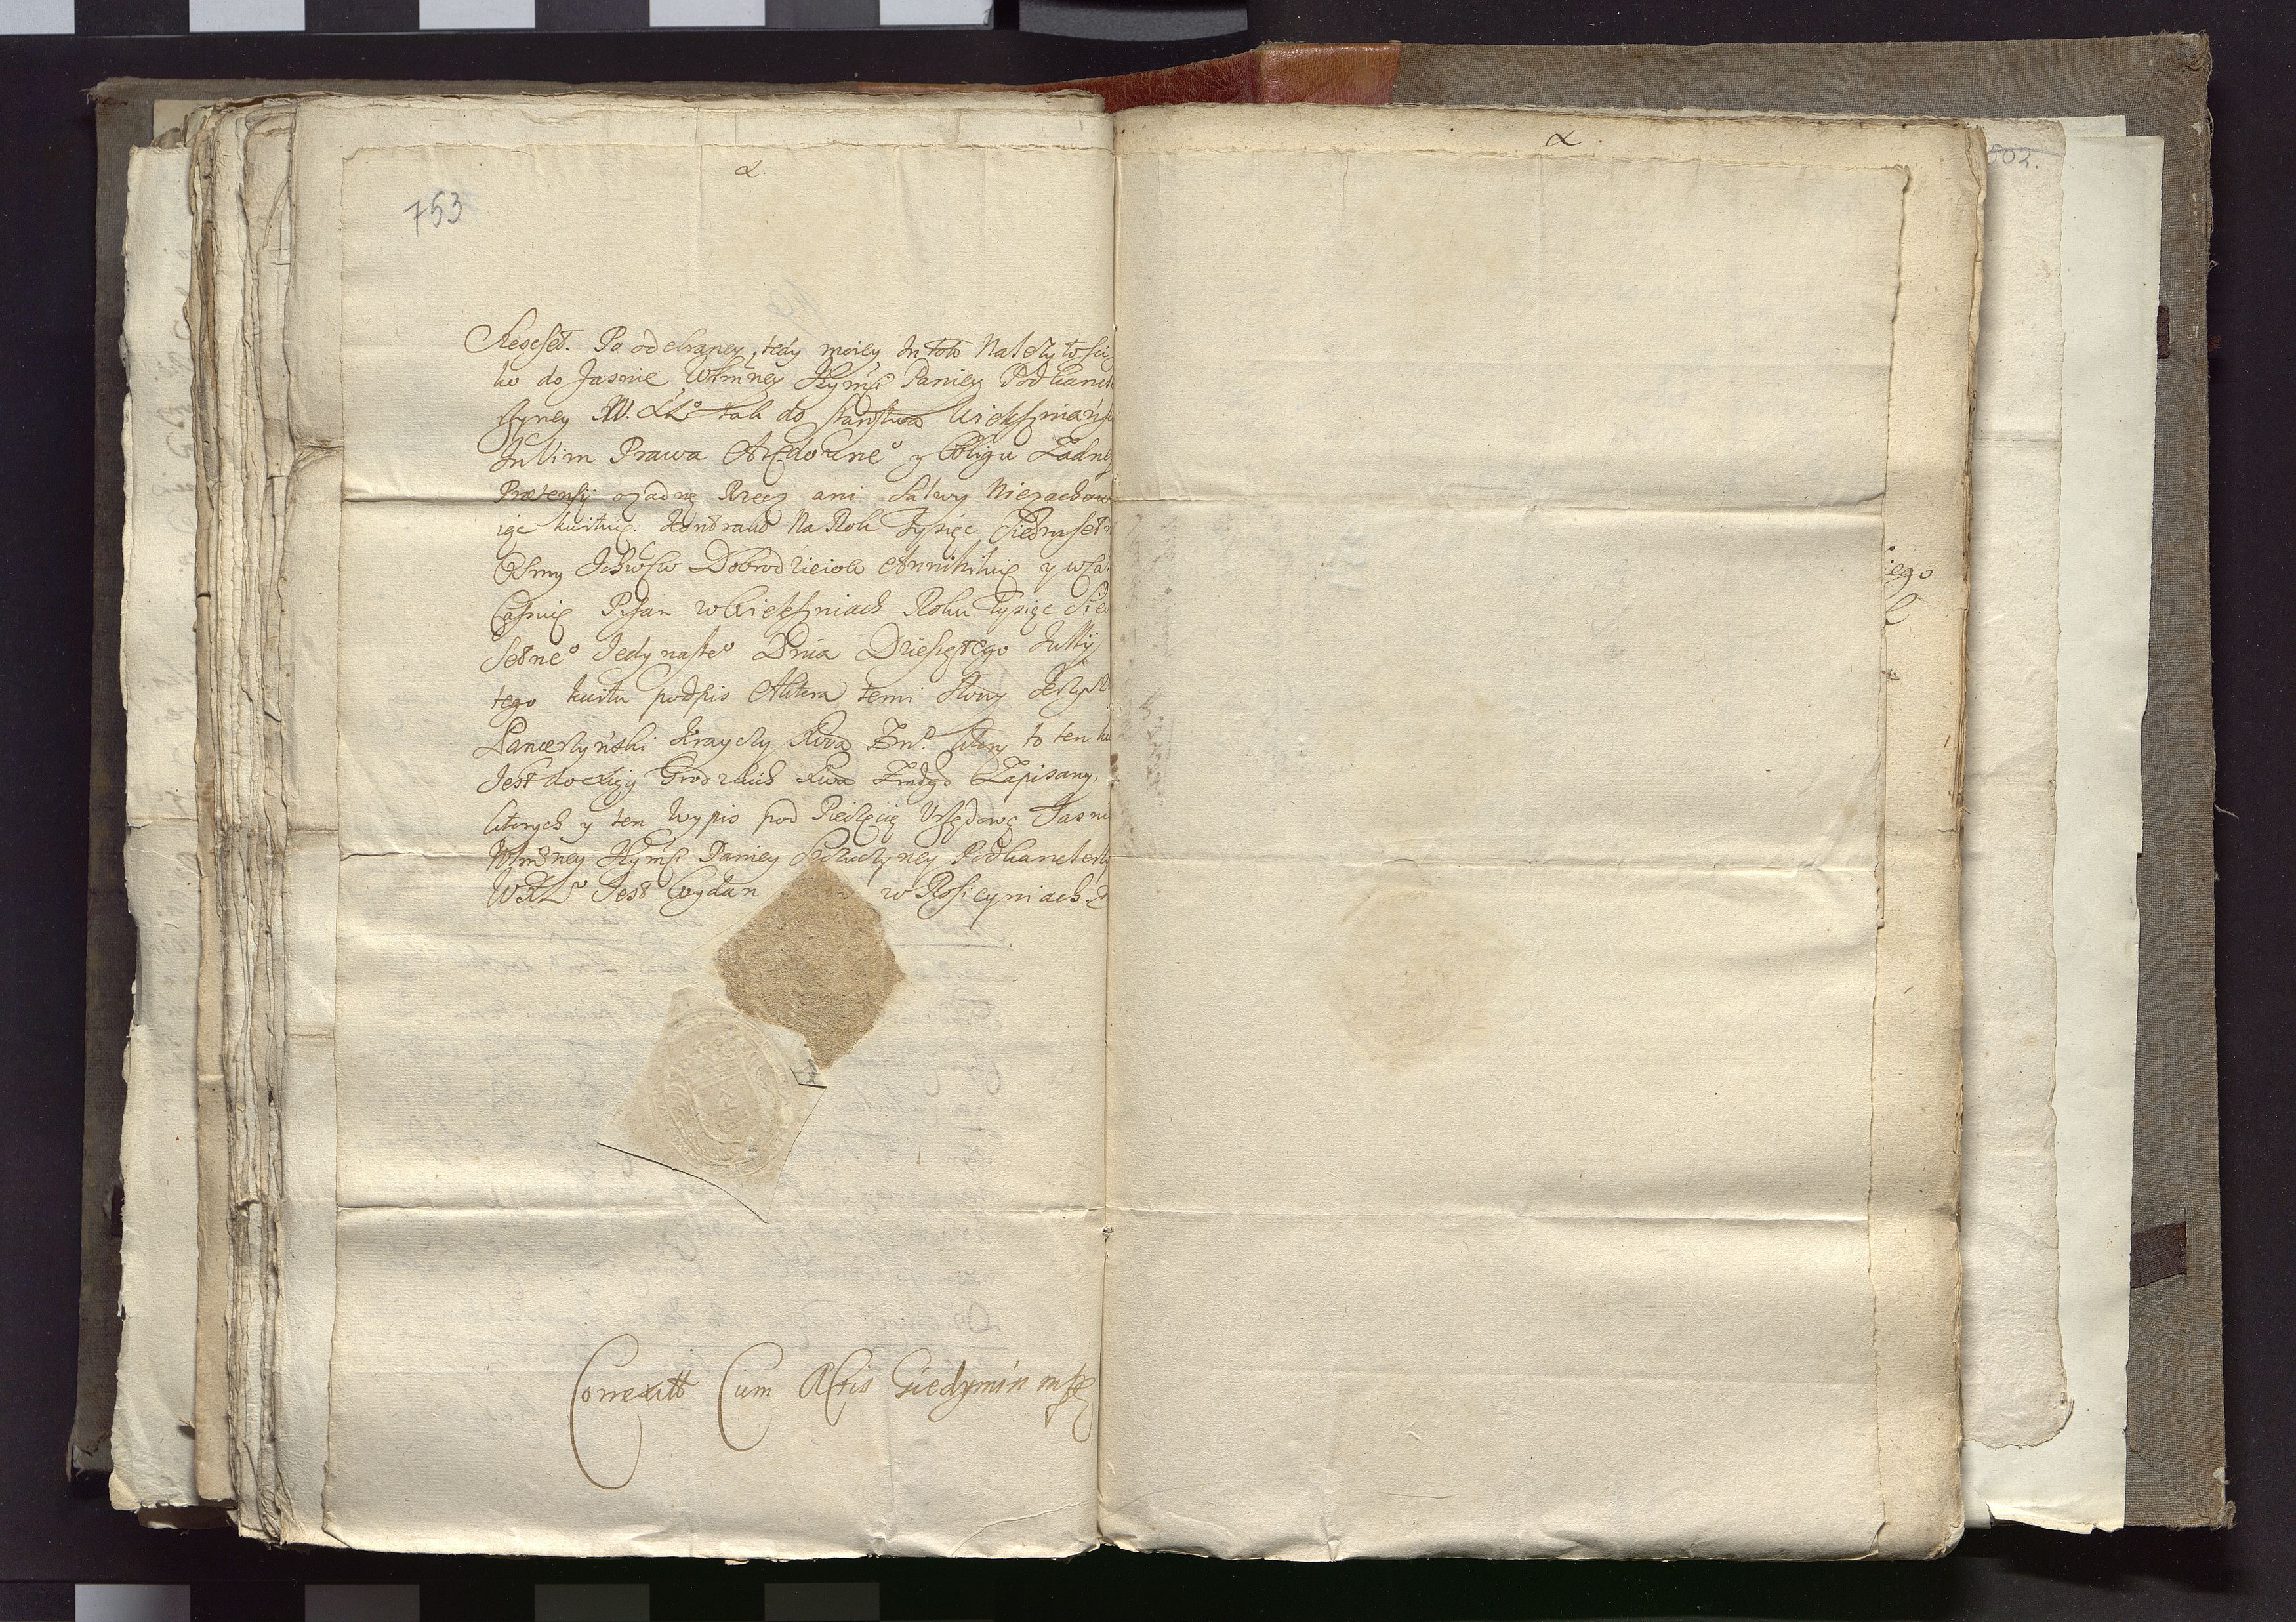 753
Rescet. Po odebraney, tedy moiey In toto Należytości
ko do Jasnie Wlmney Jeymści Paniey Podkancl
rzyney W. X L° tak do starstwa Wiekszniańs
In Vim Prawa Arędowne° y Obligu Żadney
Prætensij o żadnę Rzecz ani Salwy Niezachow
iąc kwituię. Kontrakt Na Rok Tysiąc Siedmset
Osmy Ichmściow Dobrodzieiow Annihiluię y w
Cassuię Pisan w Wiekszniach Roku Tysiąc Sied
setne° Jedynaste° Dnia Dziesiątego Julij
tego kwitu podpis Aktora temi słowy Jerzy
Pancerzyński Krayczy Xiwa Żm° ktory to ten kw
Jest do Xiąg Grodzkich Xiwa Żmdzgo Zapisany,
ktorych y ten Wypis pod Pieczęcią Vrzędową Jasnie
Wlmżney Jeymści Paniey Szczuczyney Podkanclerzy
W X L° Jest Wydan w Rosieyniach
Correxitt Cum Actis Giedymin mp
502.
iego